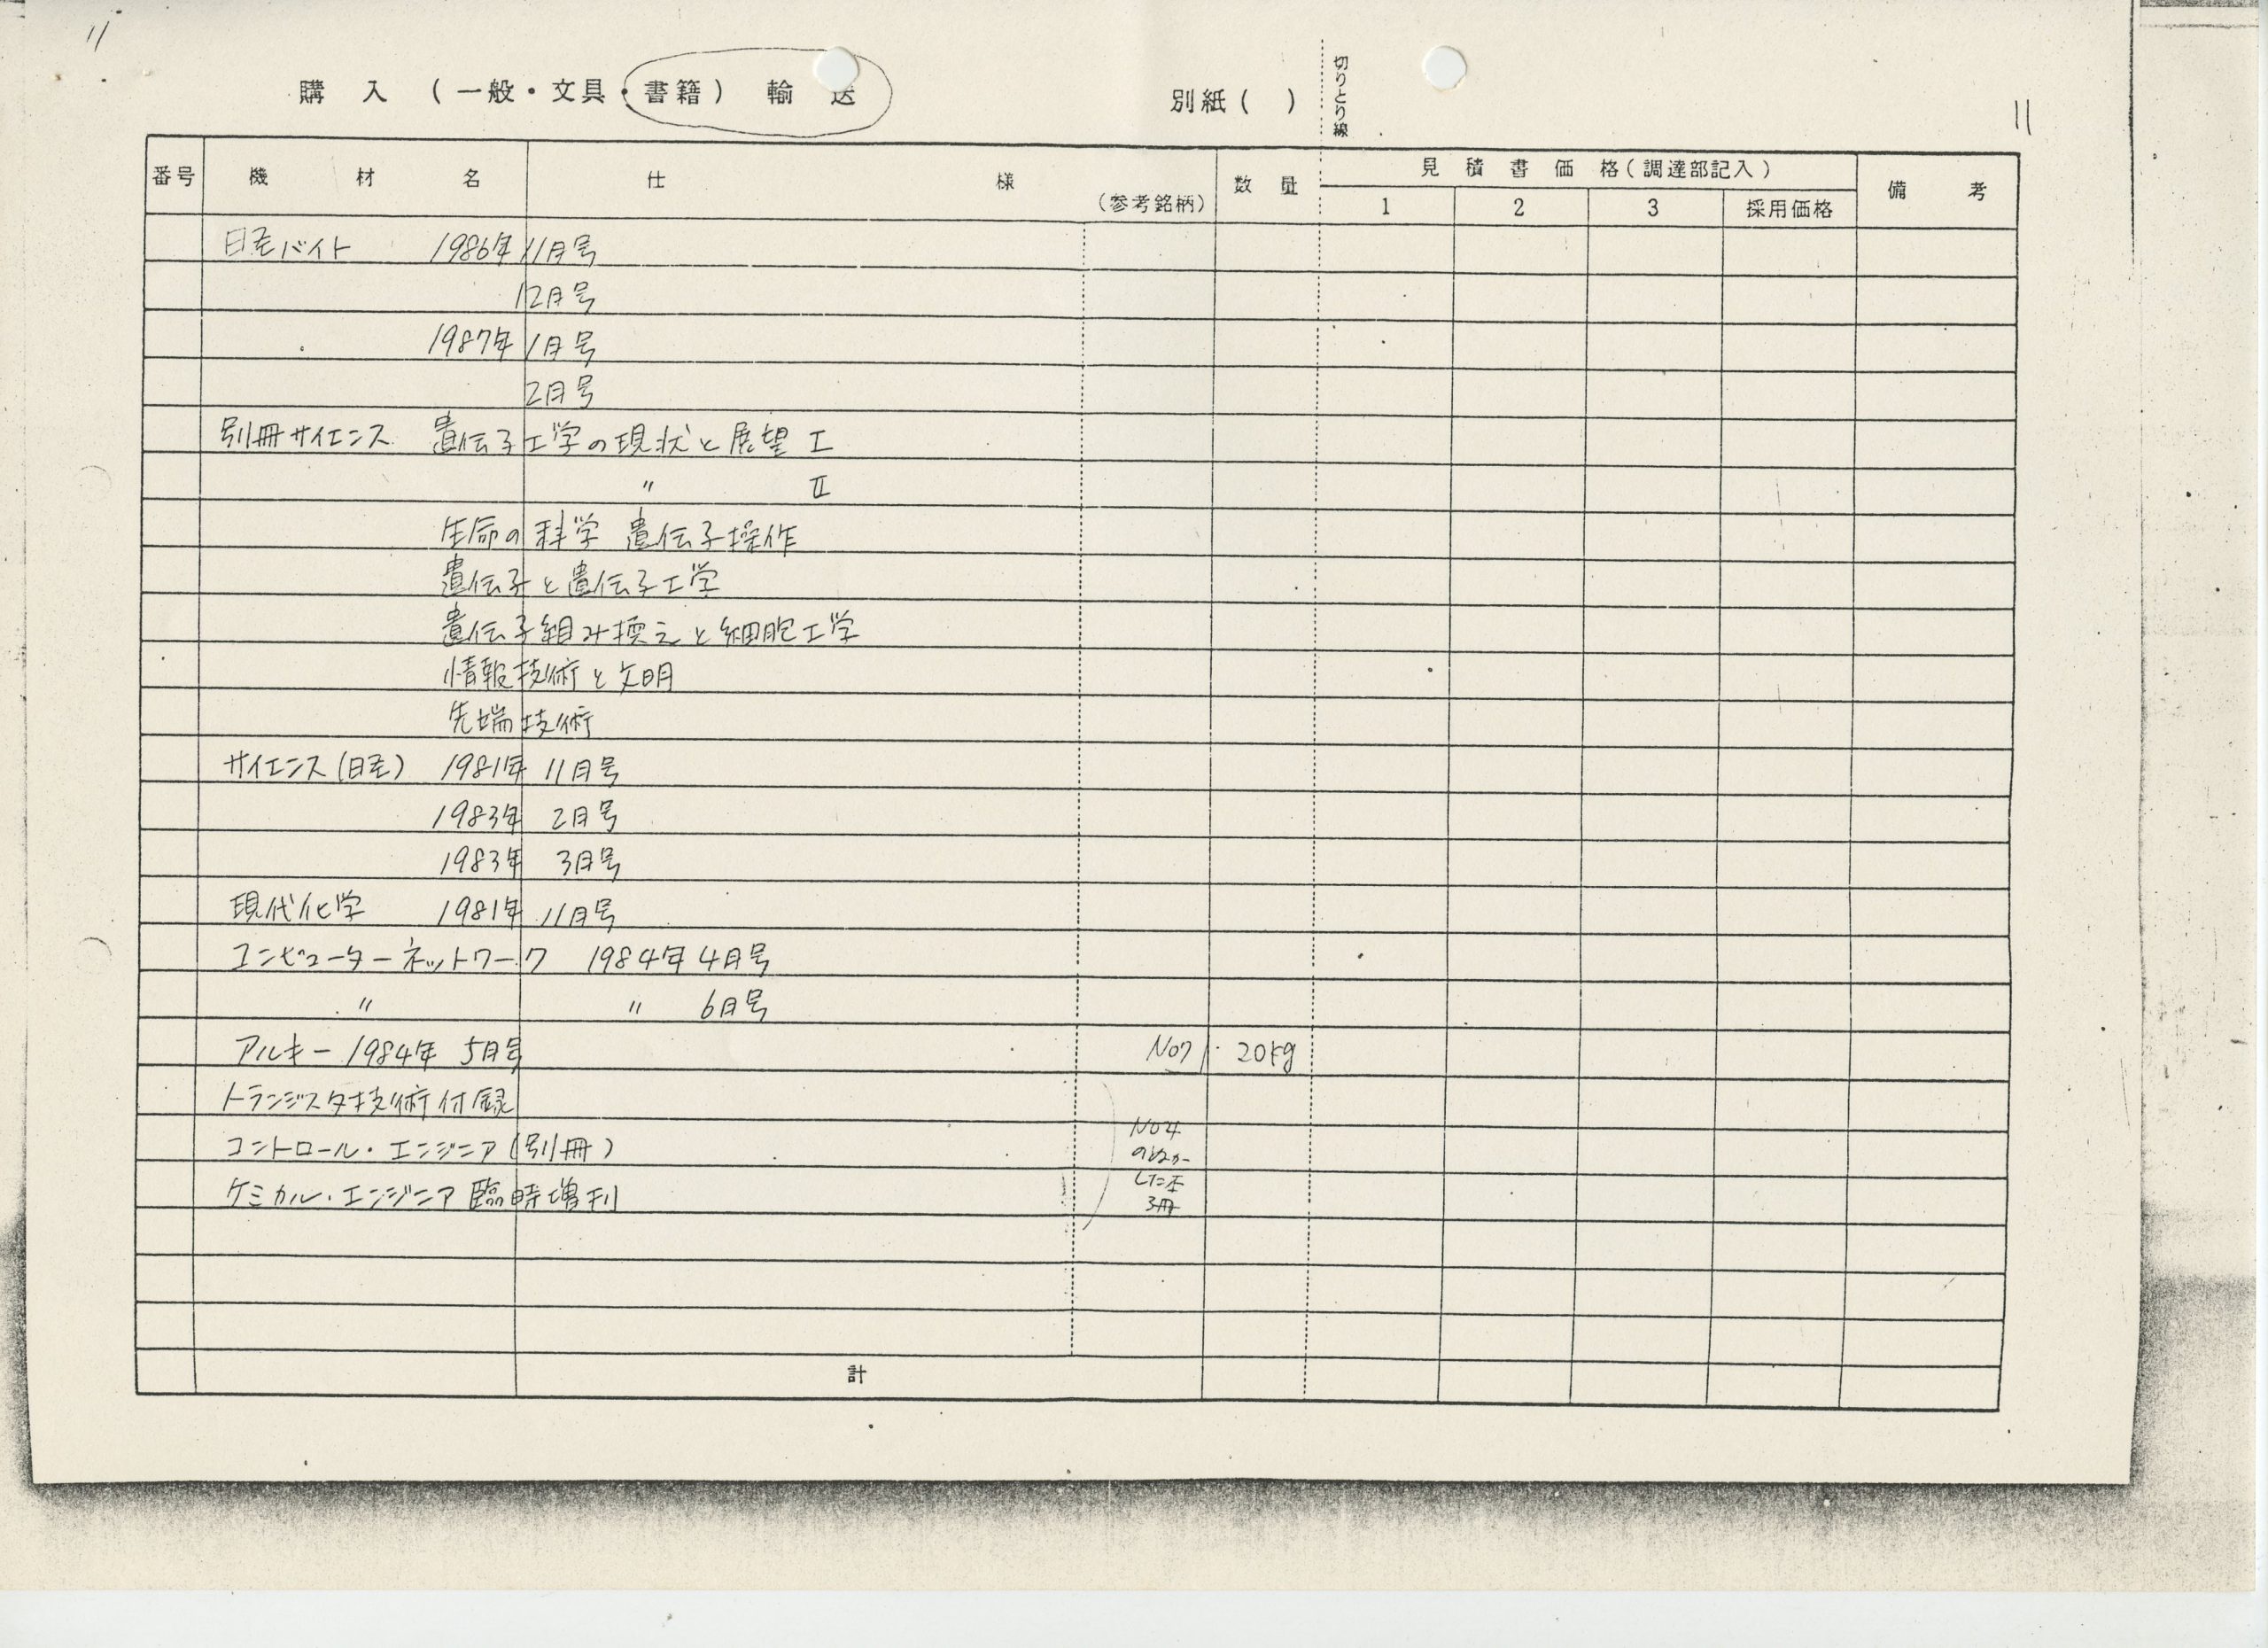 11
購入（一般・文具・書籍）輸送
別紙（ ）
切りとり線
11
番号 機材名 仕様（参考銘柄） 数量 見積書価格（調達部記入） 備考
1 2 3 採用価格
日経バイト 1986年11月号
12月号
1987年1月号
2月号
別冊サイエンス 遺伝子工学の現状と展望 I
〃 II
生命の科学 遺伝子操作
遺伝子と遺伝子工学
遺伝子組み換えと細胞工学
情報技術と文明
先端技術
サイエンス（日経） 1981年 11月号
1983年 2月号
1983年 3月号
現代化学 1981年 11月号
コンピューターネットワーク 1984年 4月号
〃 〃 6月号
アルキー 1984年 5月号 No7 20kg
トランジスタ技術付録
コントロール・エンジニア（別冊）
ケミカル・エンジニア 臨時増刊
No4
した本
3冊
計